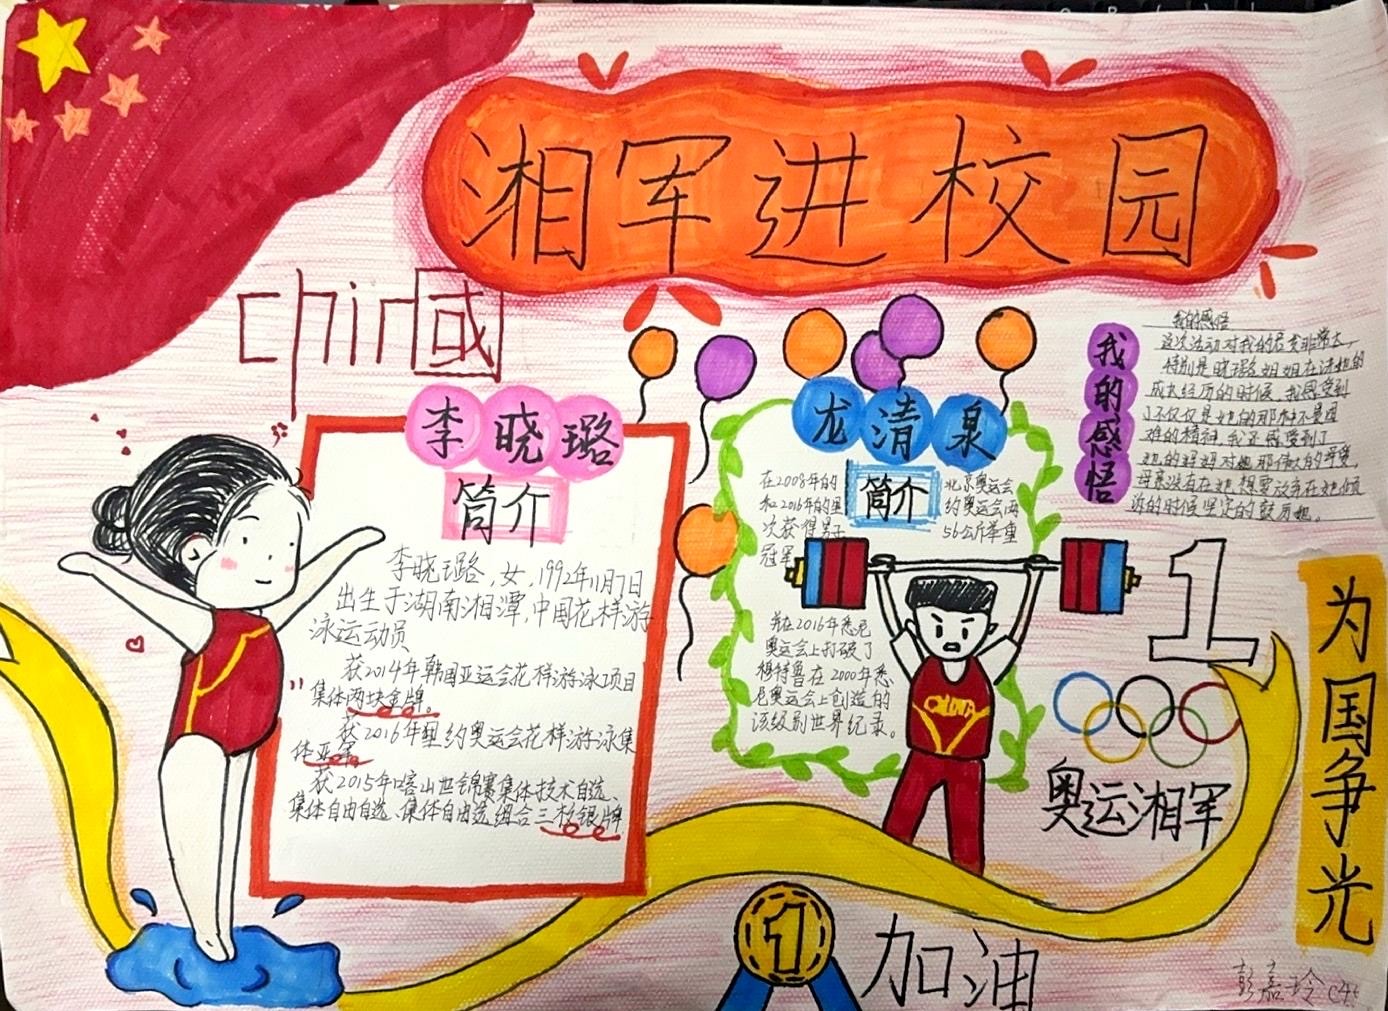 湘军进校园
chin国
李晓璐
简介
李晓璐，女，1992年11月7日
出生于湖南湘潭，中国花样游
泳运动员
获2014年韩国亚运会花样游泳项目
集体两块金牌。
获2016年里约奥运会花样游泳集
体亚军
获2015年喀山世锦赛集体技术自选、
集体自由自选、集体自由选组合三枚银牌
龙清泉
简介
在2008年的北京奥运会
和2016年的里约奥运会两
次获得男子56公斤举重
冠军
并在2016年里约
奥运会上打破了
穆特鲁在2000年悉
尼奥运会上创造的
该级别世界纪录。
CHINA
我的感悟
我的感悟
这次活动对我的启发非常大，
特别是晓璐姐姐在讲她的
成长经历的时候，我感受到
了不仅仅是她的那种不畏困
难的精神，我还感受到了
她的妈妈对她那伟大的母爱，
母亲没有在她想要放弃在她倾
诉的时候坚定的鼓励她。
1
奥运湘军
为国争光
1
加油
彭嘉玲